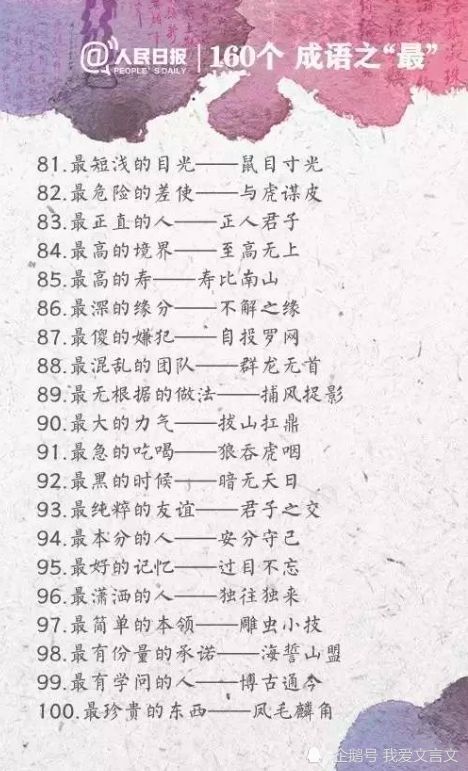 @人民日报 PEOPLE'S DAILY | 160个 成语之“最”
81.最短浅的目光——鼠目寸光
82.最危险的差使——与虎谋皮
83.最正直的人——正人君子
84.最高的境界——至高无上
85.最高的寿——寿比南山
86.最深的缘分——不解之缘
87.最傻的嫌犯——自投罗网
88.最混乱的团队——群龙无首
89.最无根据的做法——捕风捉影
90.最大的力气——拔山扛鼎
91.最急的吃喝——狼吞虎咽
92.最黑的时候——暗无天日
93.最纯粹的友谊——君子之交
94.最本分的人——安分守己
95.最好的记忆——过目不忘
96.最潇洒的人——独往独来
97.最简单的本领——雕虫小技
98.最有份量的承诺——海誓山盟
99.最有学问的人——博古通今
100.最珍贵的东西——凤毛麟角
企鹅号 我爱文言文